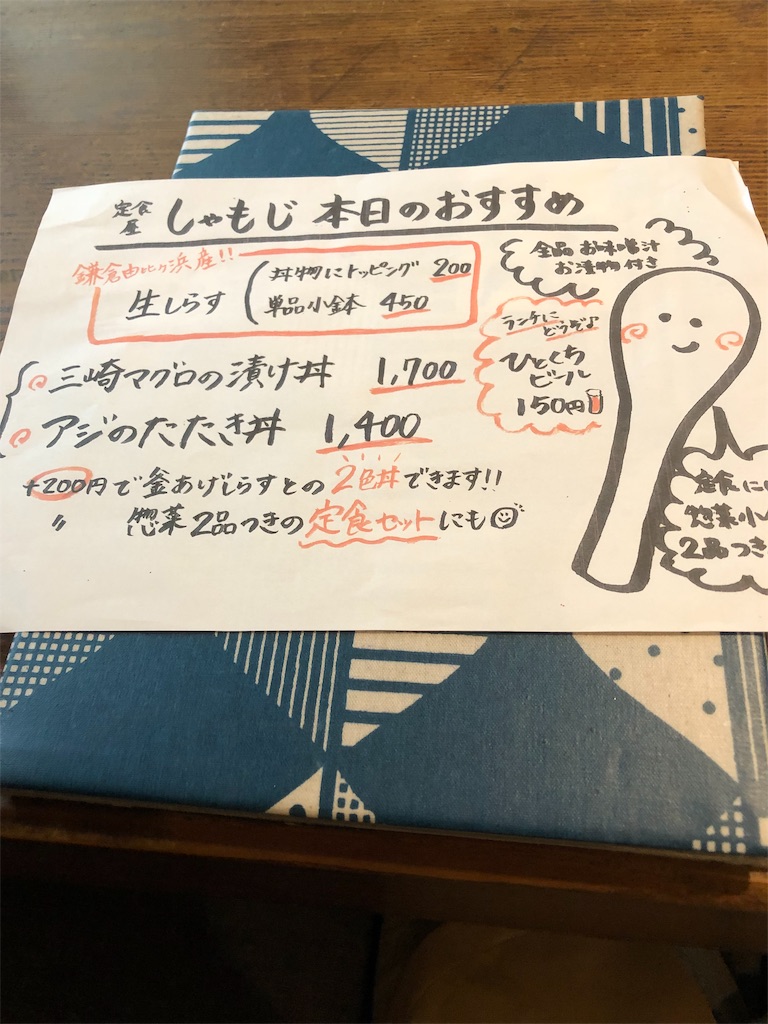 定食屋 しゃもじ 本日のおすすめ
鎌倉由比ヶ浜産!!
生しらす
丼物にトッピング 200
単品小鉢 450
三崎マグロの漬け丼 1,700
アジのたたき丼 1,400
+200円で釜あげしらすとの2色丼できます!!
〃 惣菜2品つきの定食セットにも
全品 お味噌汁
お漬物付き
ランチに
どうぞ♪
ひとくち
ビール
150円
定食に
惣菜小
2品つき